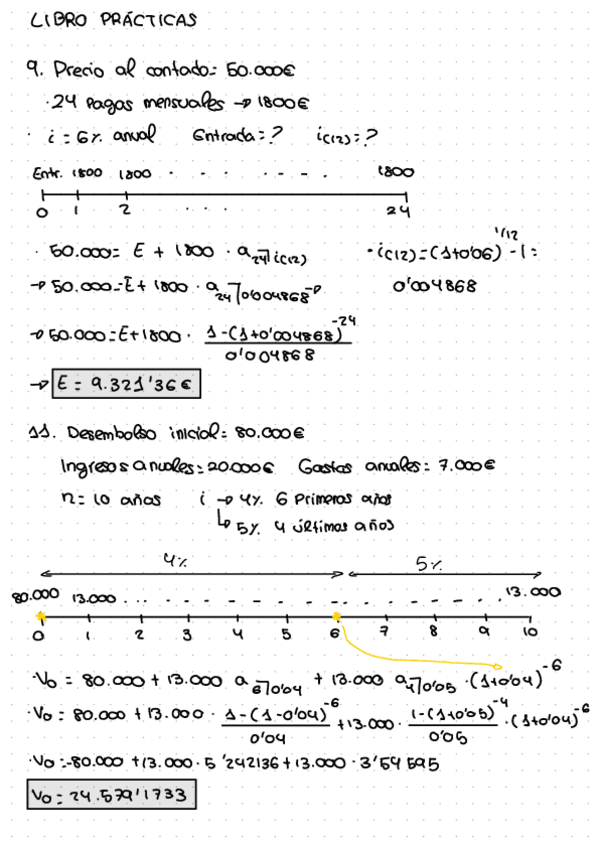 LIBRO PRÁCTICAS
9. Precio al contado= 50.000€
· 24 pagas mensuales → 1800€
· i = 6% anual Entrada=? i(12)=?
Entr. 1800 1800 · · · - - - · 1800
0 1 2 · · · 24
· 50.000= E + 1800 · a24┐i(12) · i(12)=(1+0'06)^1/12 -1=
→ 50.000=E+ 1800 · a24┐0'004868 → 0'004868
→ 50.000=E+1800 · 1-(1+0'004868)^-24 / 0'004868
→ E = 9.321'36€
11. Desembolso inicial= 80.000€
Ingresos anuales=20.000€ Gastos anuales= 7.000€
n= 10 años i → 4% 6 primeros años
↳ 5% 4 últimos años
4% 5%
80.000 13.000 . . . - - - - - - - - - - 13.000
0 1 2 3 4 5 6 7 8 9 10
· V0 = 80.000 + 13.000 a6┐0'04 + 13.000 a4┐0'05 · (1+0'04)^-6
· V0= 80.000 + 13.000 · 1-(1-0'04)^-6 / 0'04 +13.000 · 1-(1+0'05)^-4 / 0'05 · (1+0'04)^-6
· V0=-80.000 +13.000 · 5'242136+13.000 · 3'54595
V0 = 24.579'1733